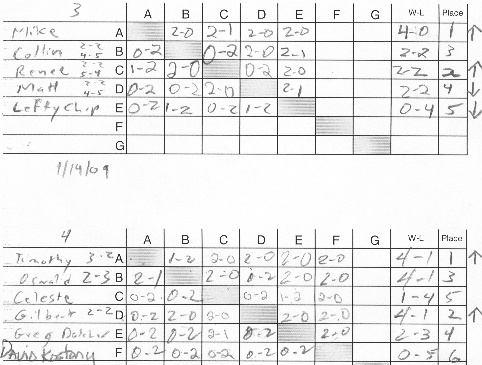 3 A B C D E F G W-L Place
Mike A 2-0 2-1 2-0 2-0 4-0 1 ↑
Collin 2-2 4-5 B 0-2 0-2 2-0 2-1 2-2 3
Renee 2-2 5-4 C 1-2 2-0 0-2 2-0 2-2 2 ↑
Matt 2-2 4-5 D 0-2 0-2 2-0 2-1 2-2 4 ↓
Lefty Chip E 0-2 1-2 0-2 1-2 0-4 5 ↓
F
G
1/14/09
4 A B C D E F G W-L Place
Timothy 3-2 A 1-2 2-0 2-0 2-0 2-0 4-1 1 ↑
Oswald 2-3 B 2-1 2-0 0-2 2-0 2-0 4-1 3
Celeste C 0-2 0-2 0-2 1-2 2-0 1-4 5
Gilbert 2-2 D 0-2 2-0 2-0 2-0 2-0 4-1 2 ↑
Greg E 0-2 0-2 2-1 0-2 2-0 2-3 4
F 0-2 0-2 0-2 0-2 0-2 0-5 6